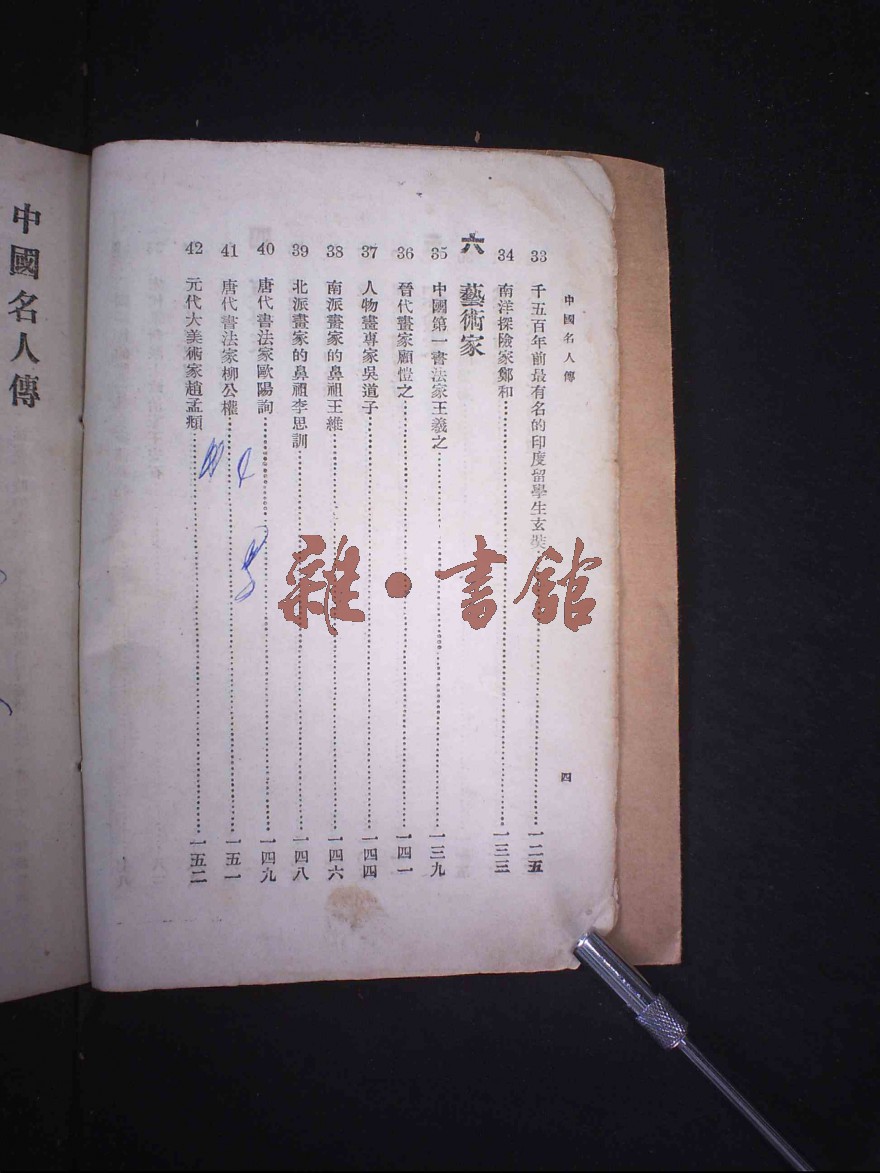 中國名人傳
四
33 千五百年前最有名的印度留學生玄奘 一二五
34 南洋探險家鄭和 一三三
六 藝術家
35 中國第一書法家王羲之 一三九
36 晉代畫家顧愷之 一四一
37 人物畫專家吳道子 一四四
38 南派畫家的鼻祖王維 一四六
39 北派畫家的鼻祖李思訓 一四八
40 唐代書法家歐陽詢 一四九
41 唐代書法家柳公權 一五一
42 元代大美術家趙孟頫 一五二
中國名人傳
雜·書館